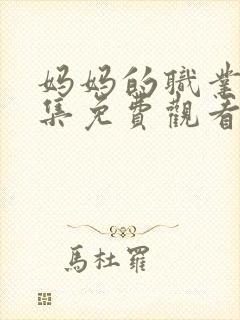 妈妈的職業
集免費觀看
馬杜羅